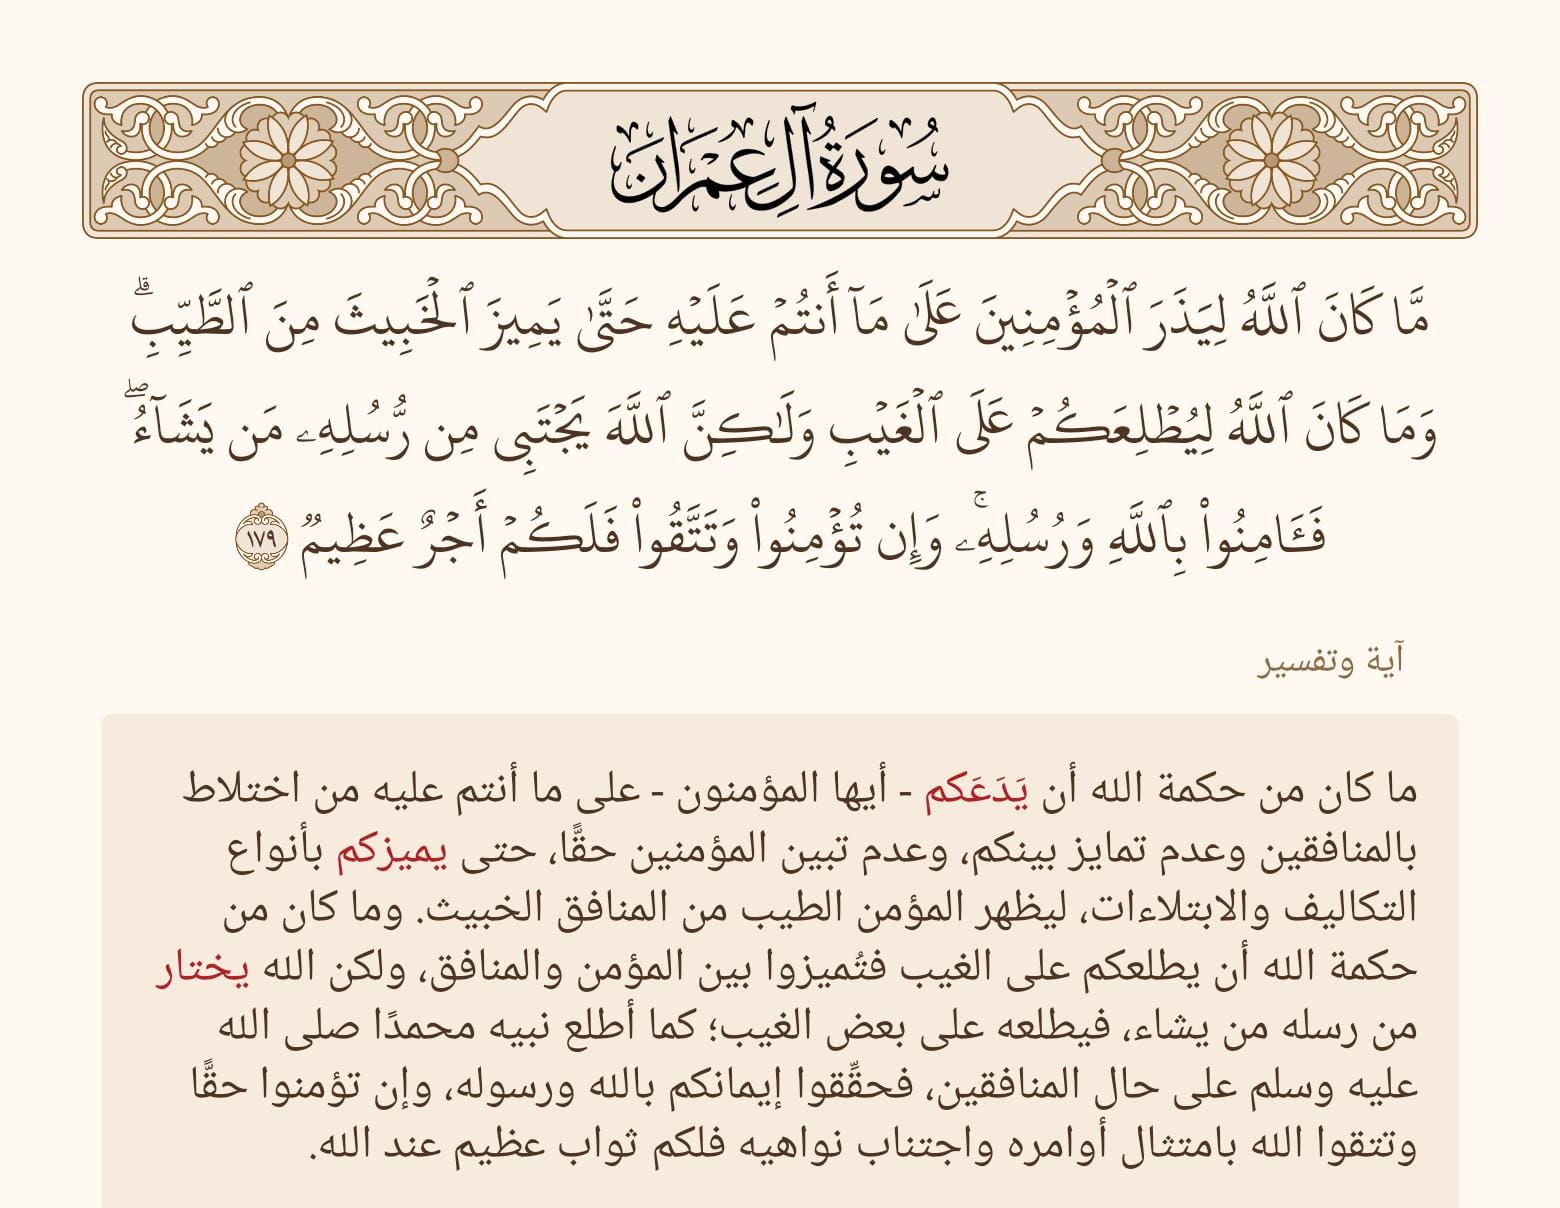 سُورَةُ آلِ عِمْرَانَ
مَّا كَانَ ٱللَّهُ لِيَذَرَ ٱلْمُؤْمِنِينَ عَلَىٰ مَآ أَنتُمْ عَلَيْهِ حَتَّىٰ يَمِيزَ ٱلْخَبِيثَ مِنَ ٱلطَّيِّبِ ۗ
وَمَا كَانَ ٱللَّهُ لِيُطْلِعَكُمْ عَلَى ٱلْغَيْبِ وَلَـٰكِنَّ ٱللَّهَ يَجْتَبِى مِن رُّسُلِهِۦ مَن يَشَآءُ ۖ
فَـَٔامِنُوا۟ بِٱللَّهِ وَرُسُلِهِۦ ۚ وَإِن تُؤْمِنُوا۟ وَتَتَّقُوا۟ فَلَكُمْ أَجْرٌ عَظِيمٌ ١٧٩
آية وتفسير
ما كان من حكمة الله أن يَدَعَكم - أيها المؤمنون - على ما أنتم عليه من اختلاط
بالمنافقين وعدم تمايز بينكم، وعدم تبين المؤمنين حقًّا، حتى يميزكم بأنواع
التكاليف والابتلاءات، ليظهر المؤمن الطيب من المنافق الخبيث. وما كان من
حكمة الله أن يطلعكم على الغيب فتُميزوا بين المؤمن والمنافق، ولكن الله يختار
من رسله من يشاء، فيطلعه على بعض الغيب؛ كما أطلع نبيه محمدًا صلى الله
عليه وسلم على حال المنافقين، فحقِّقوا إيمانكم بالله ورسوله، وإن تؤمنوا حقًّا
وتتقوا الله بامتثال أوامره واجتناب نواهيه فلكم ثواب عظيم عند الله.